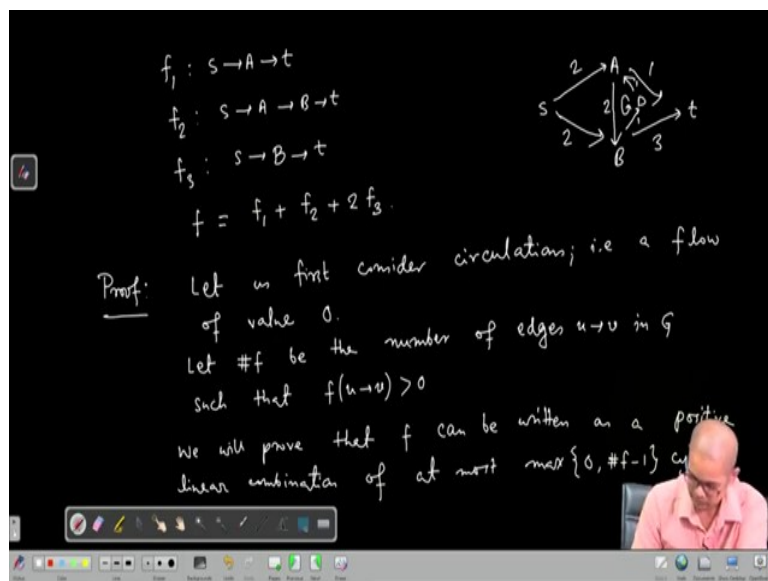 f₁ : s → A → t
f₂ : s → A → B → t
f₃ : s → B → t
f = f₁ + f₂ + 2 f₃.
2 A 1
s 2 G D t
2 B 3
Proof: Let us first consider circulation; i.e a flow
of value 0.
Let #f be the number of edges u → v in G
such that f(u → v) > 0
We will prove that f can be written as a positive
linear combination of at most max {0, #f-1}